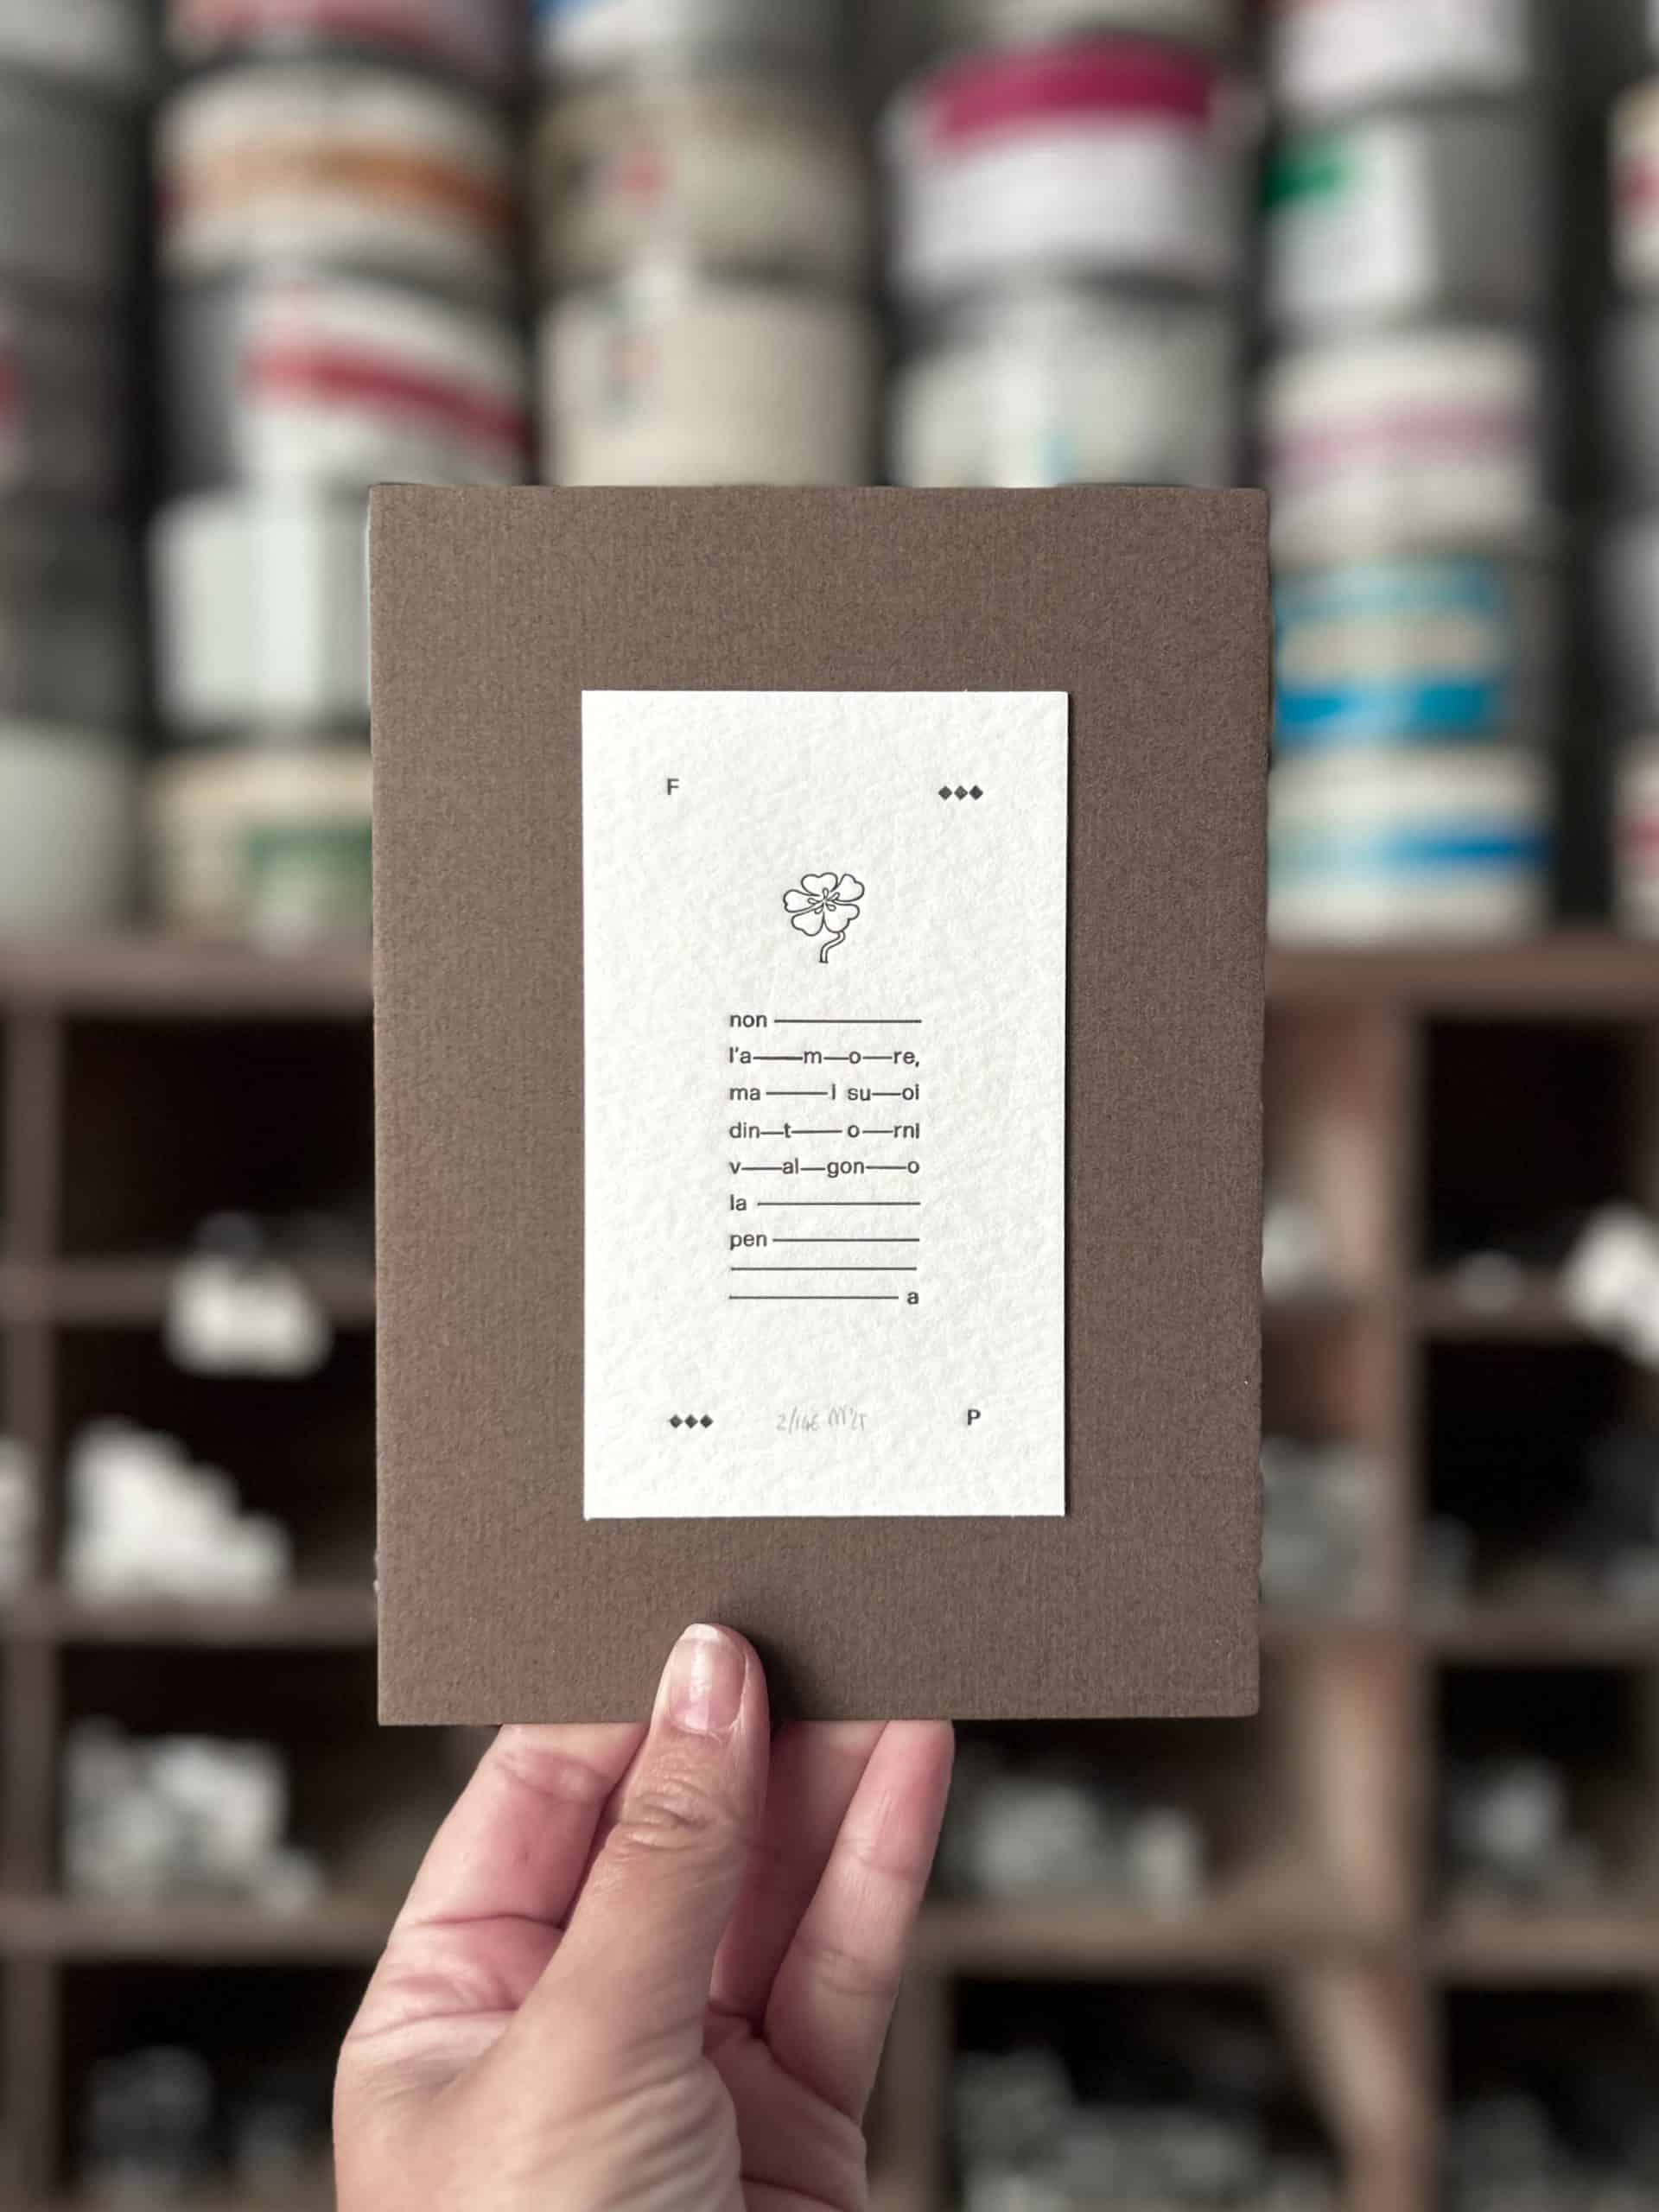 F ◆◆◆
non ———
l'a——m—o—re,
ma ——i su—oi
din—t—— o—rni
v——al—gon——o
la ———
pen ———
———
——— a
◆◆◆ P